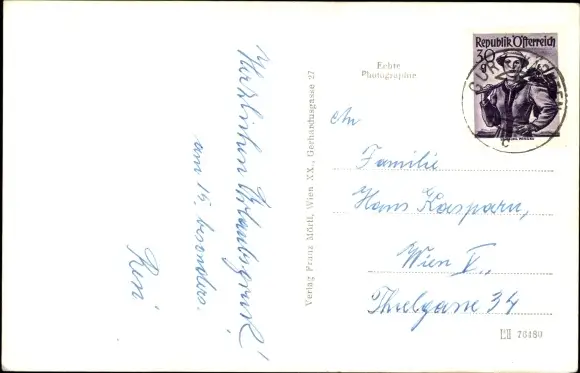 Herzlichen Urlaubsgruß!
am 15. besonders.
Reni
Verlag Franz Mörtl, Wien XX., Gerhardusgasse 27
Echte
Photographie
Republik Österreich
30
An
Familie
Hans Kasparu,
Wien V.,
Thielgasse 34
76480